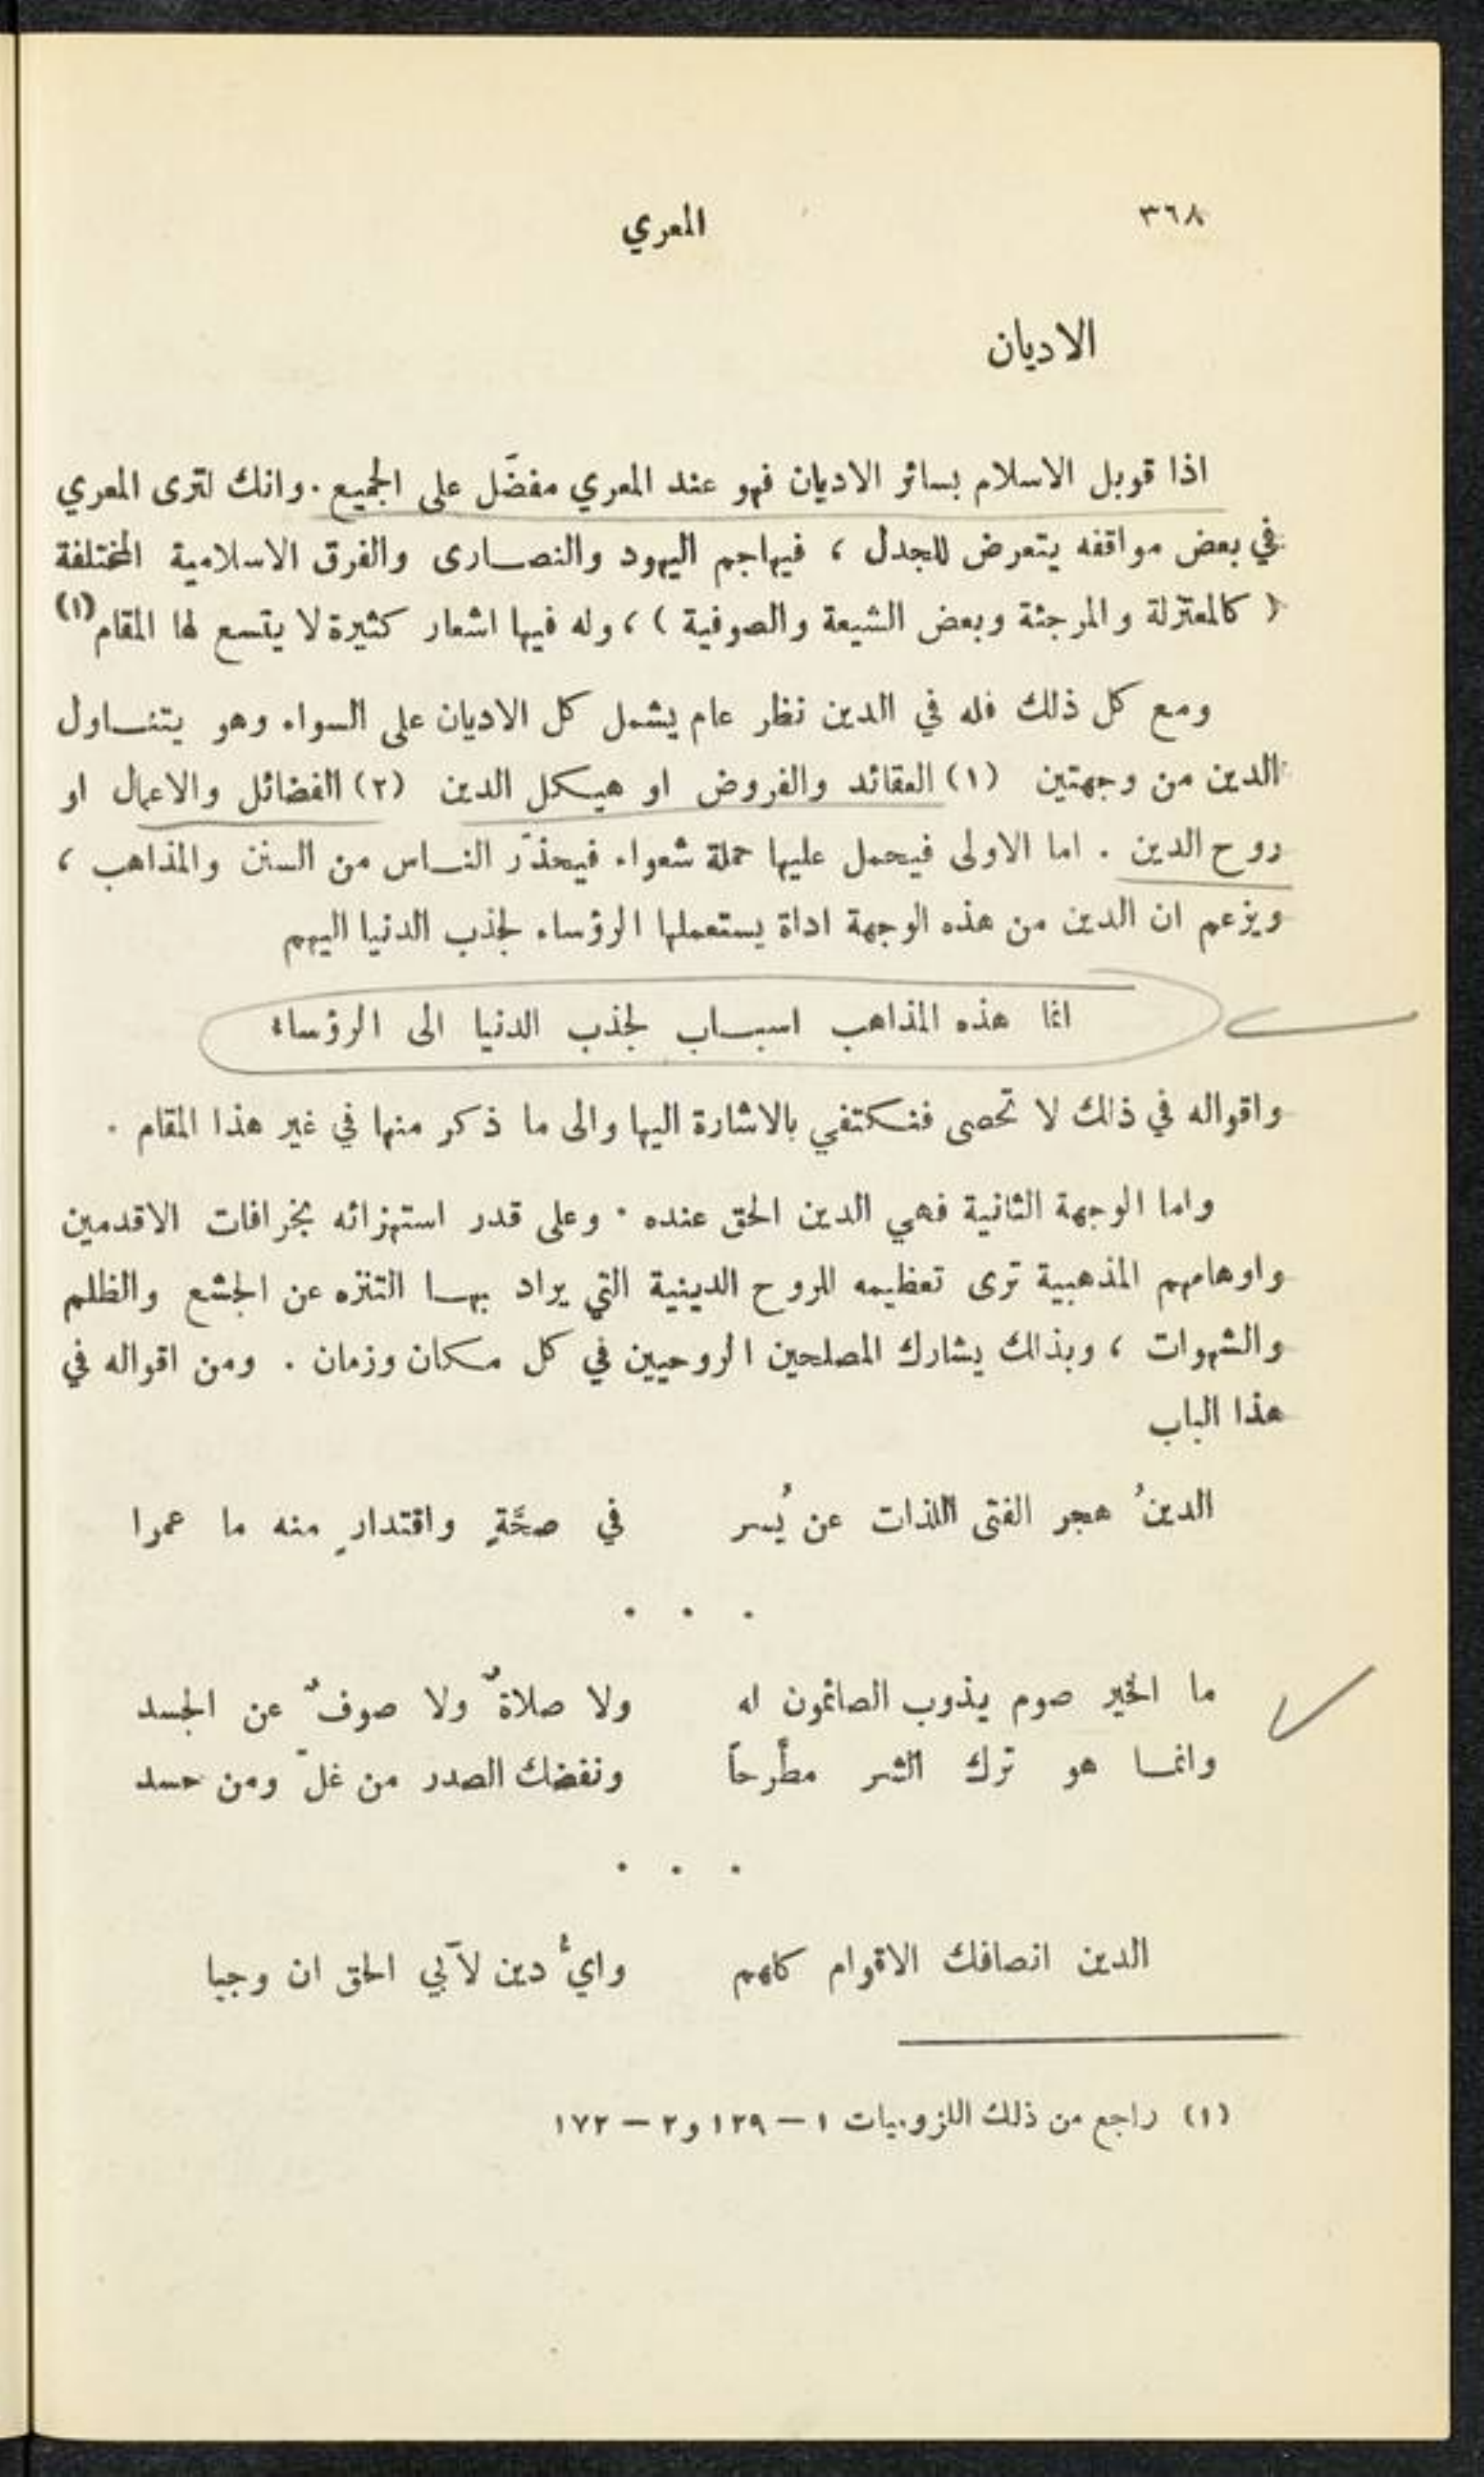 ٣٦٨ المعري
الاديان
اذا قوبل الاسلام بسائر الاديان فهو عند المعري مفضّل على الجميع . وانك لترى المعري
في بعض مواقفه يتعرض للجدل ، فيهاجم اليهود والنصارى والفرق الاسلامية المختلفة
( كالمعتزلة والمرجئة وبعض الشيعة والصوفية ) ، وله فيها اشعار كثيرة لا يتسع لها المقام (١)
ومع كل ذلك فله في الدين نظر عام يشمل كل الاديان على السواء وهو يتناول
الدين من وجهتين (١) العقائد والفروض او هيكل الدين (٢) الفضائل والاعمال او
روح الدين . اما الاولى فيحمل عليها حملة شعواء فيحذّر الناس من السنن والمذاهب ،
ويزعم ان الدين من هذه الوجهة اداة يستعملها الرؤساء لجذب الدنيا اليهم
انما هذه المذاهب اسباب لجذب الدنيا الى الرؤساء
واقواله في ذلك لا تحصى فنكتفي بالاشارة اليها والى ما ذكر منها في غير هذا المقام .
واما الوجهة الثانية فهي الدين الحق عنده . وعلى قدر استهزائه بخرافات الاقدمين
واوهامهم المذهبية ترى تعظيمه للروح الدينية التي يراد بها التنزه عن الجشع والظلم
والشهوات ، وبذلك يشارك المصلحين الروحيين في كل مكان وزمان . ومن اقواله في
هذا الباب
الدينُ هجر الفتى اللذات عن يُسر في صحَّةٍ واقتدارٍ منه ما عمرا
. . .
ما الخير صوم يذوب الصائمون له ولا صلاةٌ ولا صوفٌ عن الجسد
وانما هو ترك الشر مطّرحاً ونفضك الصدر من غلّ ومن حسد
. . .
الدين انصافك الاقوام كلهم وايُّ دين لآبي الحق ان وجبا
(١) راجع من ذلك اللزوميات ١ – ١٢٩ و ٢ – ١٧٢